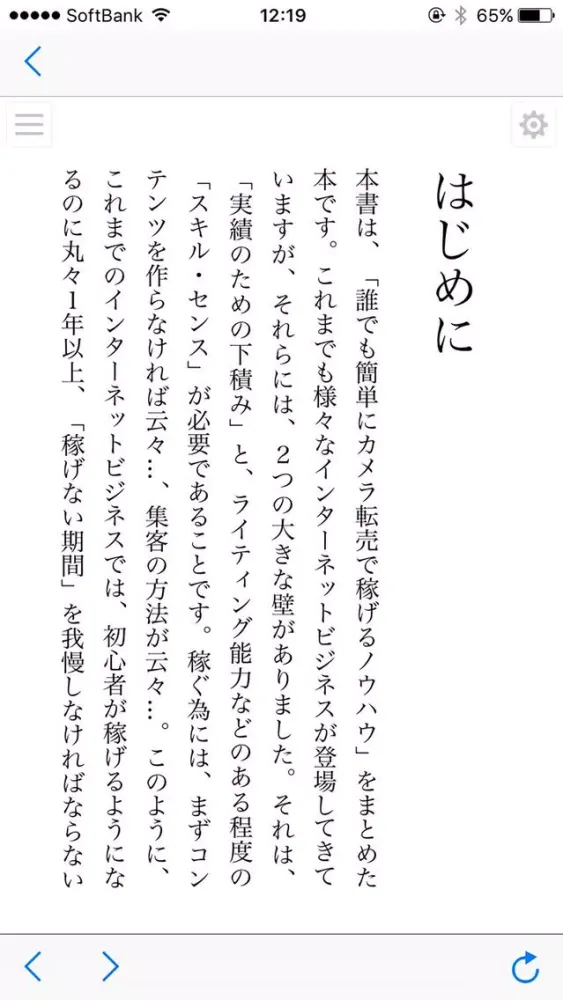 SoftBank
12:19
65%
はじめに
本書は、「誰でも簡単にカメラ転売で稼げるノウハウ」をまとめた
本です。これまでも様々なインターネットビジネスが登場してきて
いますが、それらには、2つの大きな壁がありました。それは、
「実績のための下積み」と、ライティング能力などのある程度の
「スキル・センス」が必要であることです。稼ぐ為には、まずコン
テンツを作らなければ云々…、集客の方法が云々…。このように、
これまでのインターネットビジネスでは、初心者が稼げるようにな
るのに丸々1年以上、「稼げない期間」を我慢しなければならない